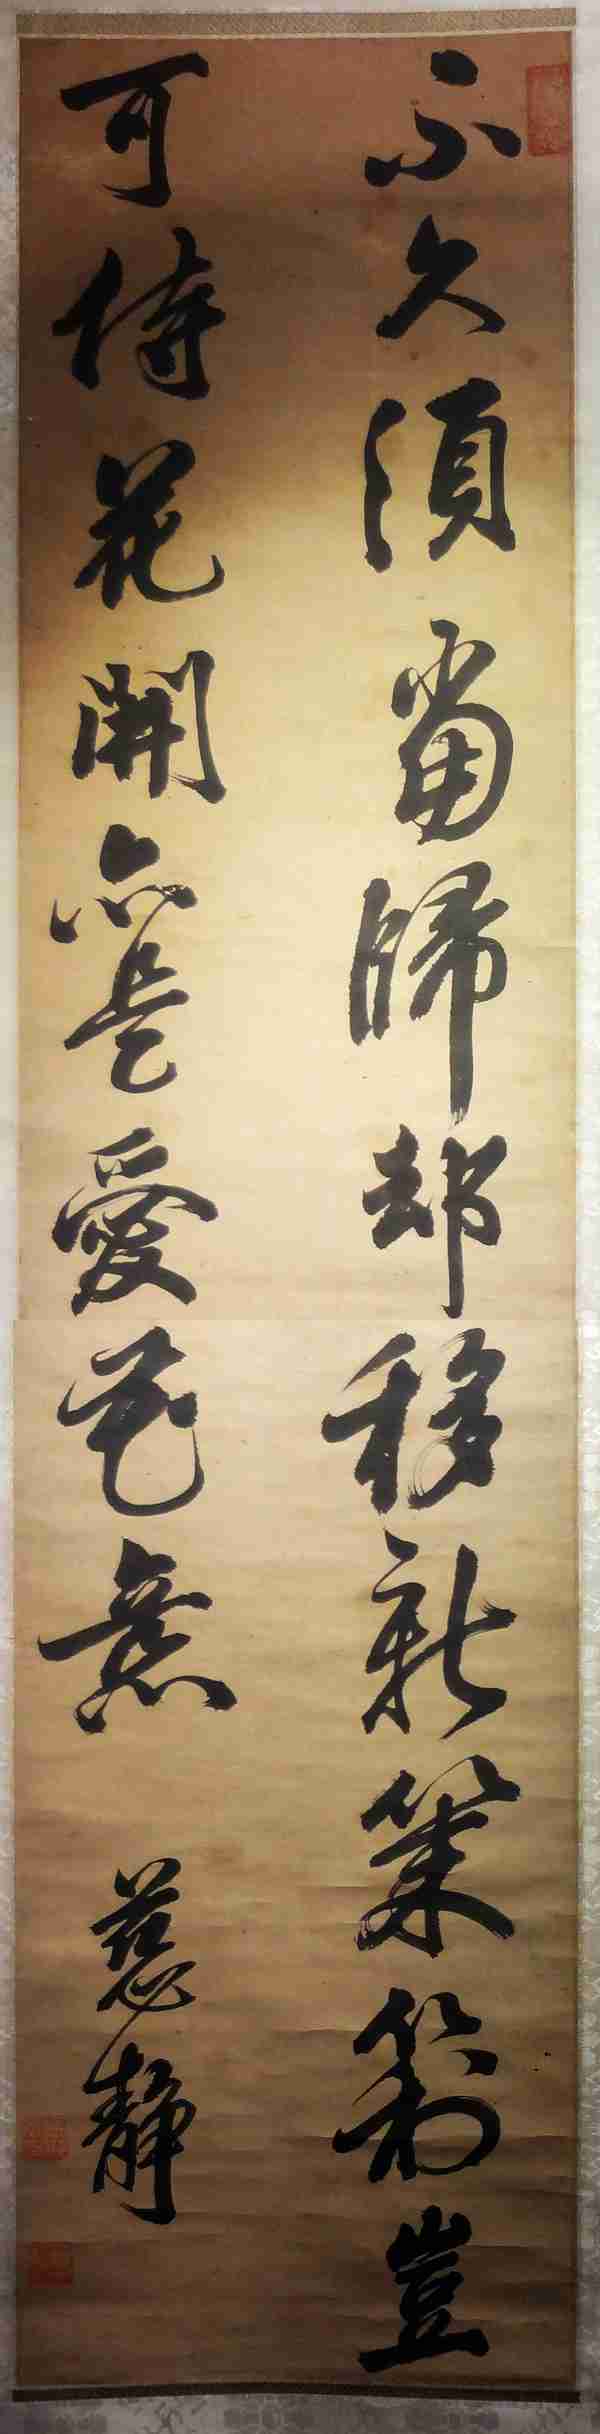 不久須當歸却移新豈
可待花開亦是愛花意
慈靜